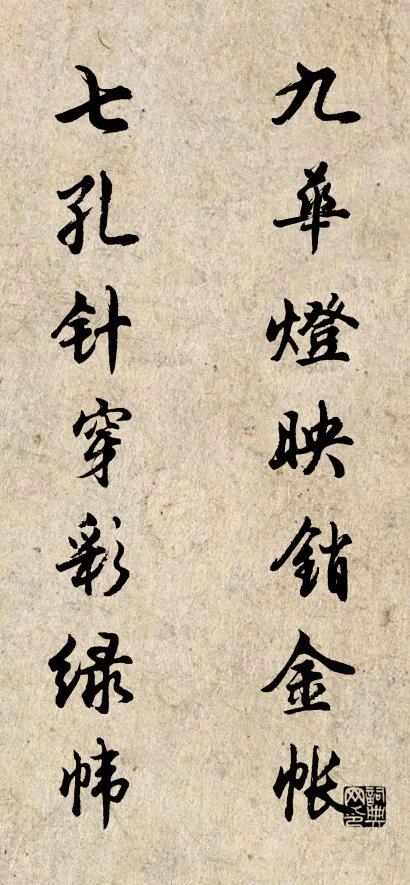 九華燈映銷金帐
七孔针穿彩緑帏
詞典网印